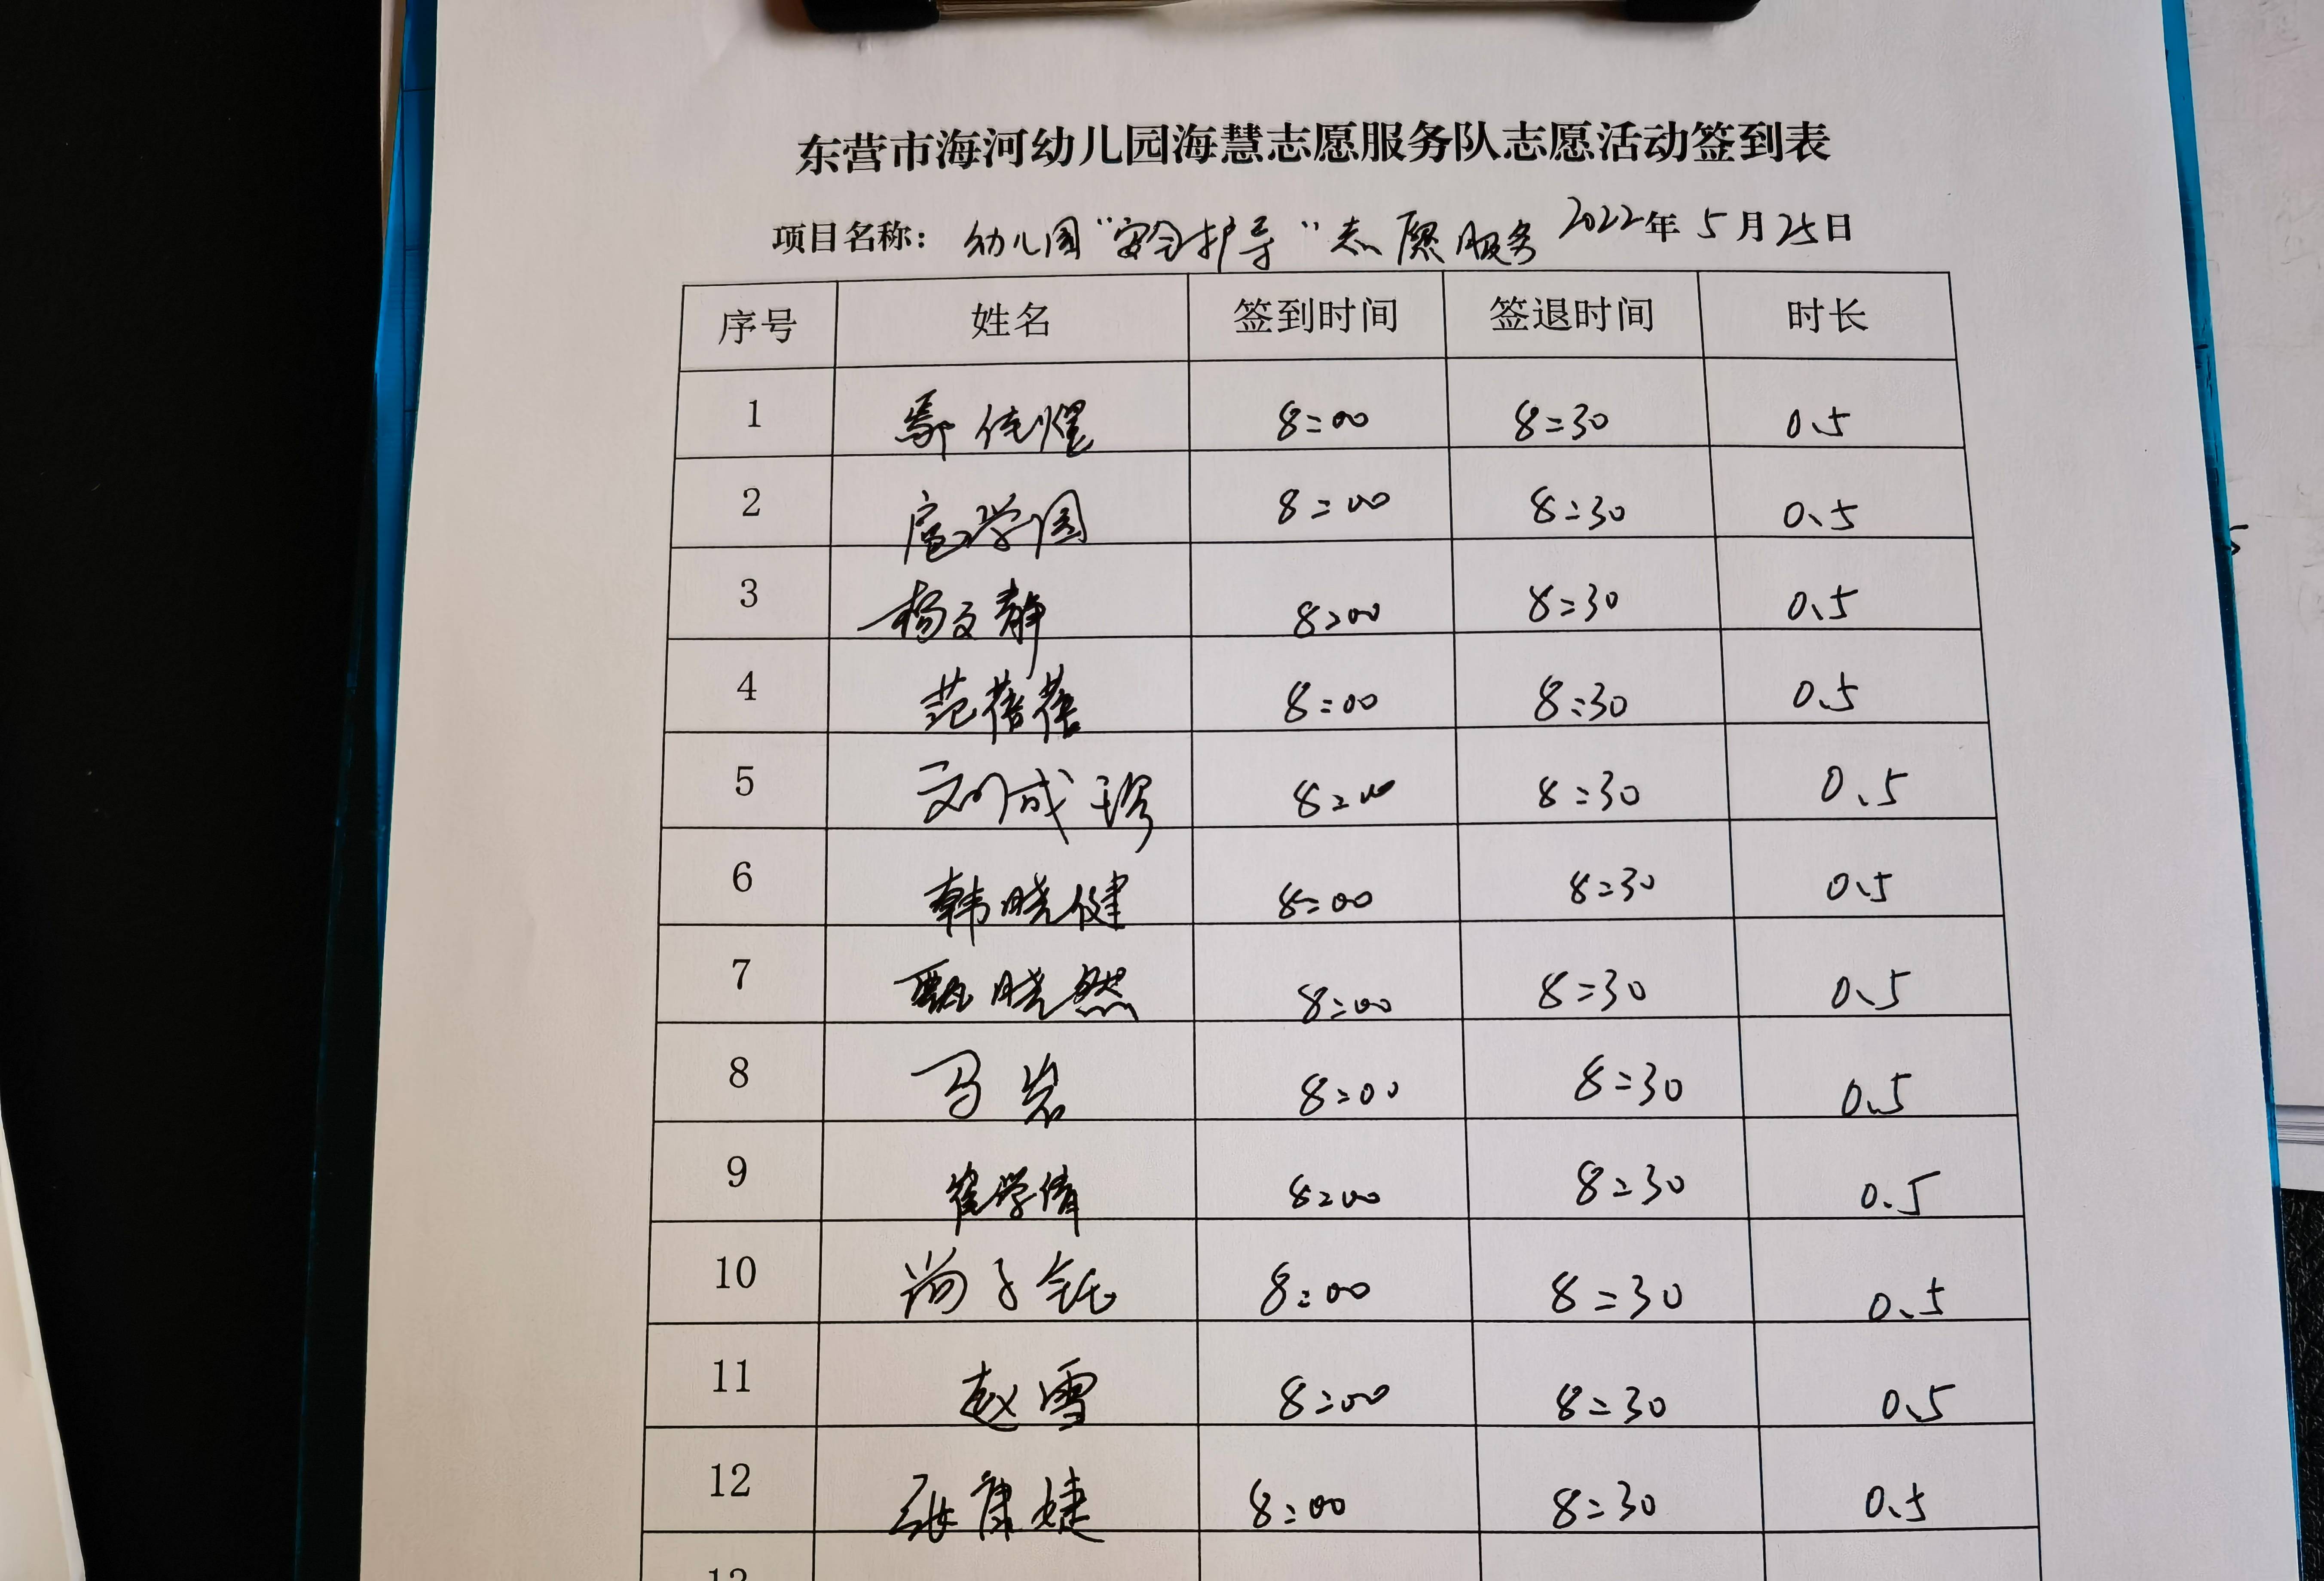 东营市海河幼儿园海慧志愿服务队志愿活动签到表
项目名称：幼儿园“安全护导”志愿服务 2022年5月25日
序号 姓名 签到时间 签退时间 时长
1 8:00 8:30 0.5
2 扈学国 8:00 8:30 0.5
3 杨文静 8:00 8:30 0.5
4 范蓓蓓 8:00 8:30 0.5
5 刘成珍 8:00 8:30 0.5
6 韩晓健 8:00 8:30 0.5
7 甄晓然 8:00 8:30 0.5
8 马岩 8:00 8:30 0.5
9 崔学倩 8:00 8:30 0.5
10 尚子钰 8:00 8:30 0.5
11 赵雪 8:00 8:30 0.5
12 张康婕 8:00 8:30 0.5
13